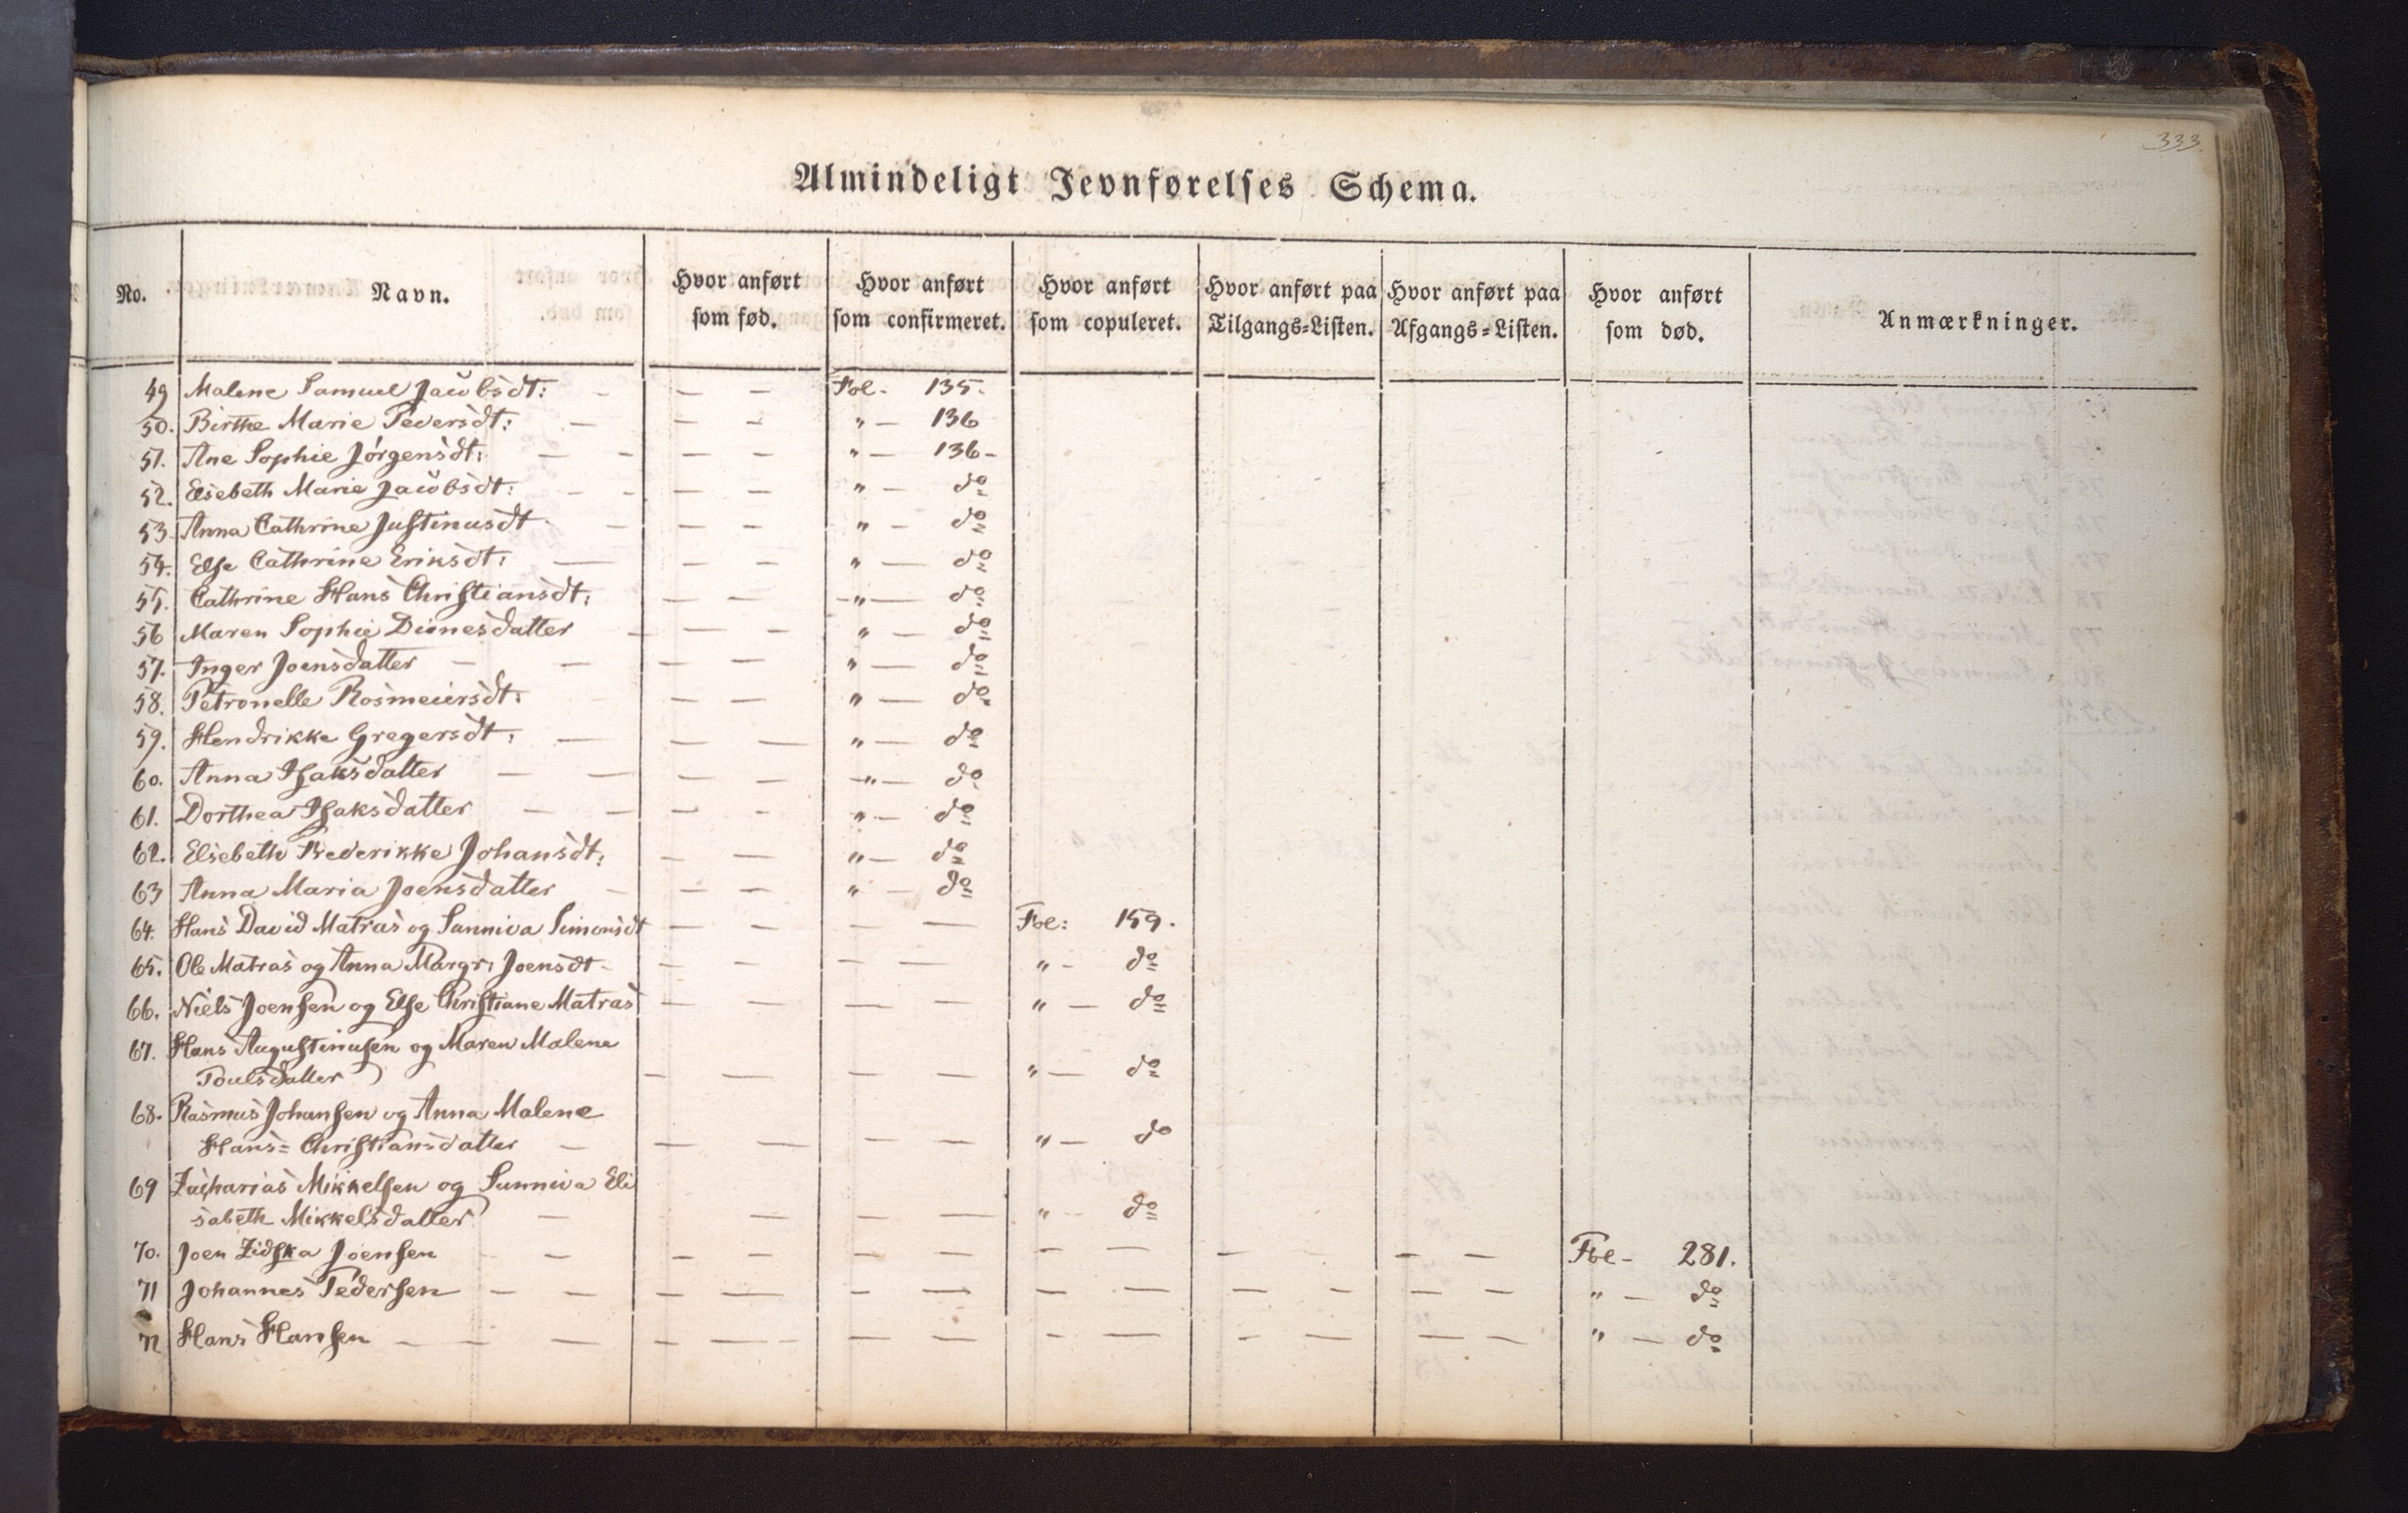 333.
Almindeligt Jevnførelses Schema.
No. Navn. Hvor anført som fød. Hvor anført som confirmeret. Hvor anført som copuleret. Hvor anført paa Tilgangs=Listen. Hvor anført paa Afgangs=Listen. Hvor anført som død. Anmærkninger.
49 Malene Samuel Jacobsdt: – – – Fol. 135.
50. Birthe Marie Pedersdt: – – – " – 136
51. Ane Sophie Jørgensdt: – – – – " – 136 –
52. Elsebeth Marie Jacobsdt: – – – – " – do
53. Anna Cathrine Justinusdt. – – – " – do
54. Else Cathrine Eriksdt: – – – " – do
55. Cathrine Hans Christiansdt: – – – " – do
56 Maren Sophie Dimesdatter – – – " – do
57. Inger Joensdatter – – – – " – do
58. Petronelle Rosmeiersdt: – – " – do
59. Hendrikke Gregersdt: – – – " – do
60. Anna Isaksdatter – – – – – " – do
61. Dorthea Isaksdatter – – – – " – do
62. Elsebeth Frederikke Johansdt: – – " – do
63 Anna Maria Joensdatter – – – " – do
64. Hans David Matras og Sanniva Simonsdt – – – – Fol: 159.
65. Ole Matras og Anna Margr: Joensdt – – – – " – do
66. Niels Joensen og Else Christiane Matras – – – – " – do
67. Hans Augustinusen og Maren Malene
Poulsdatter – – – – " – do
68. Rasmus Johansen og Anna Malene
Hans= Christiansdatter – – – – – " – do
69 Zacharias Mikkelsen og Sunniva Eli
sabeth Mikkelsdatter – – – – " – do
70. Joen Zidska Joensen – – – – – – – – – – Fol – 281.
71 Johannes Pedersen – – – – – – – – – – – – " – do
72 Hans Hansen – – – – – – – – – – – – – " – do